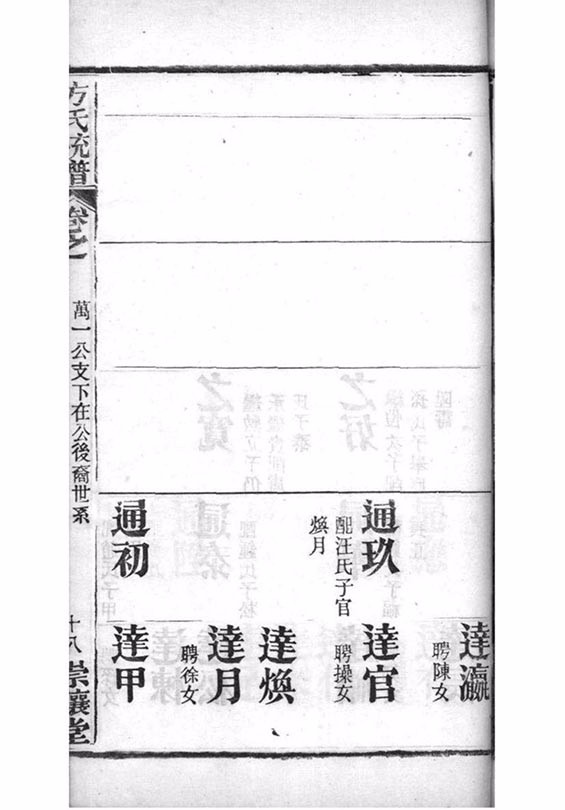 達瀛
聘陳女
通玖
配汪氏子官
煥月
達官
聘操女
達煥
達月
聘徐女
通初
達甲
方氏統譜
卷之
萬一公支下在公後裔世系
十八
崇讓堂